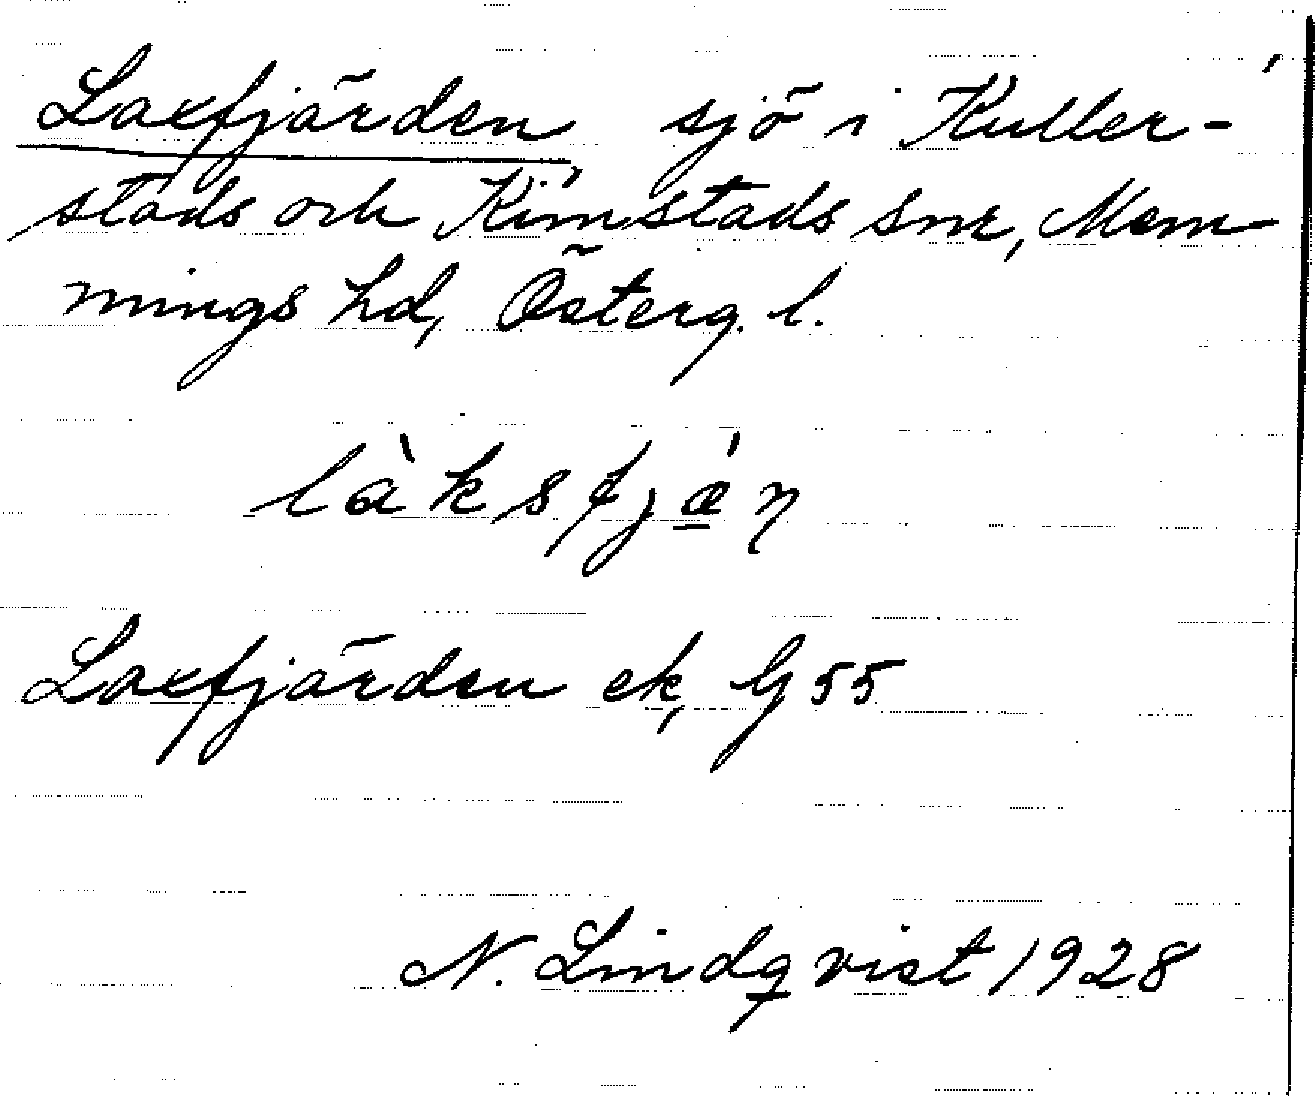 Laxfjärden, sjö i Kuller-
stads och Kimstads snr, Mem
mings hd, Österg. l.
làksfjæ̠̀ŋ
Laxfjärden ek, G 55
N. Lindqvist 1928